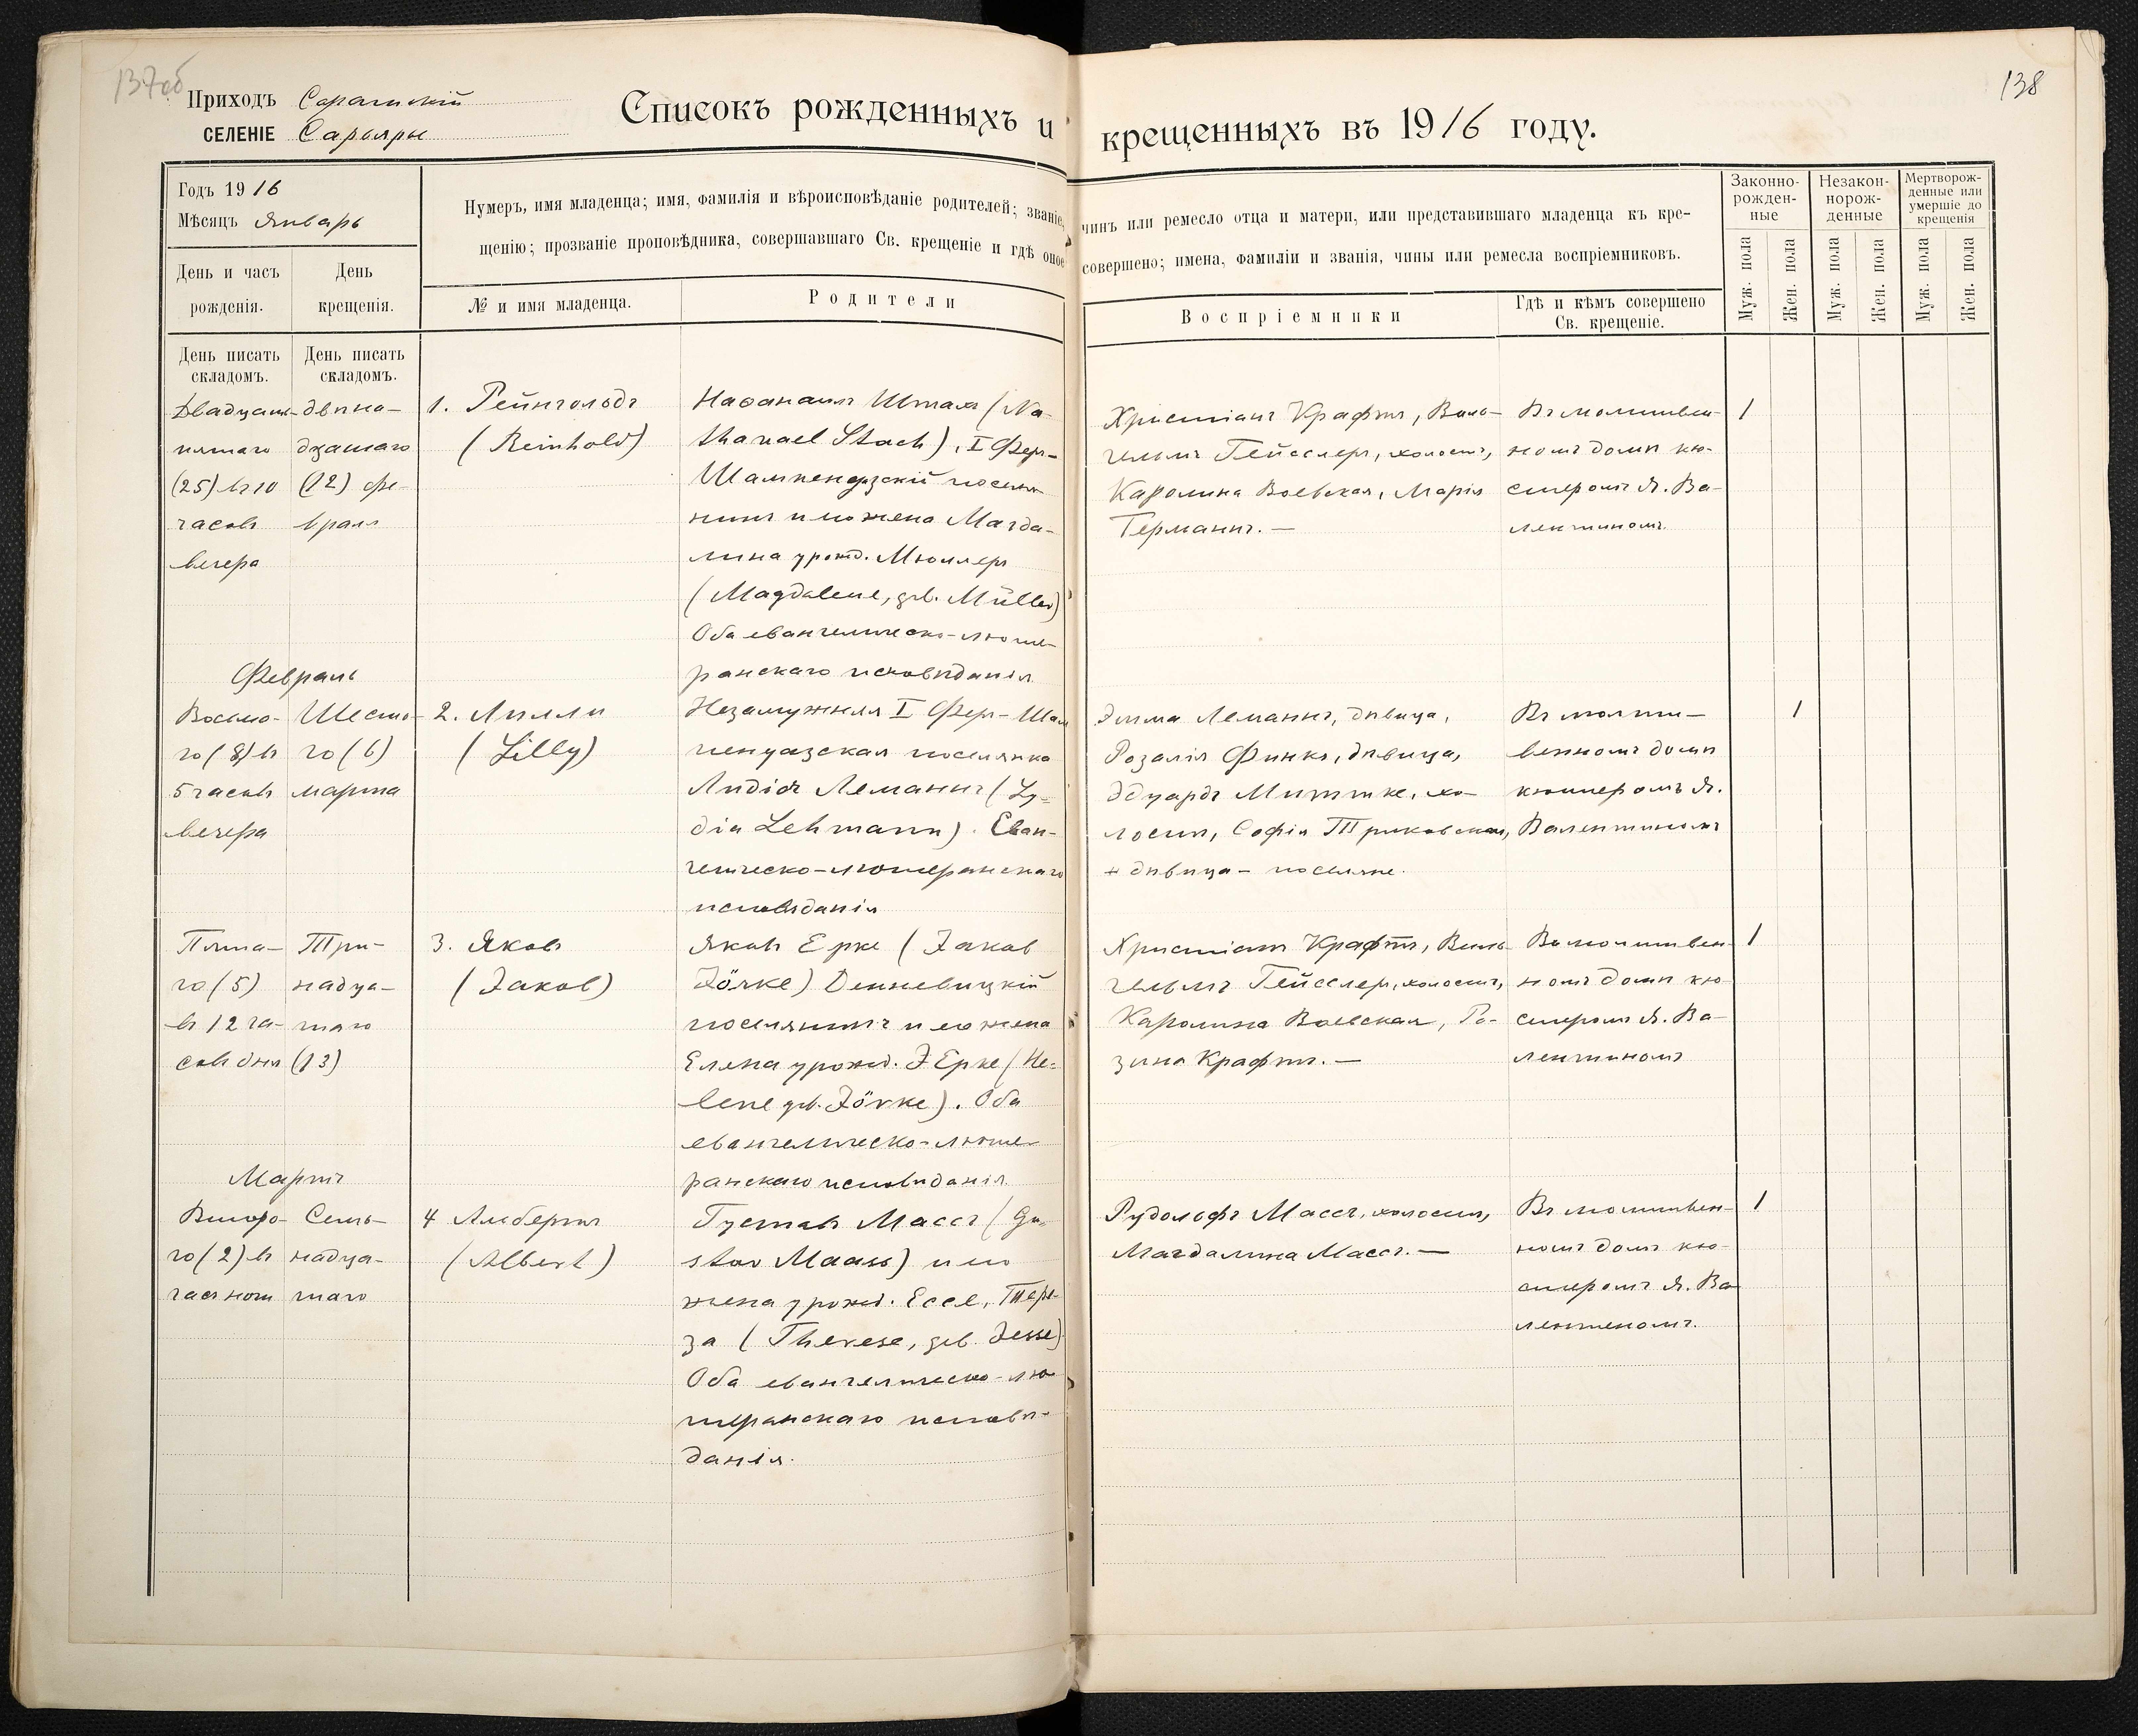 137об
138
Приходъ Саратскій
СЕЛЕНІЕ Сарьяры
Списокъ рожденныхъ и крещенныхъ въ 1916 году.
Годъ 1916
Мѣсяцъ Январь
День и часъ рожденія.
День крещенія.
Нумеръ, имя младенца; имя, фамилія и вѣроисповѣданіе родителей; званіе, чинъ или ремесло отца и матери, или представившаго младенца къ кре-
щенію; прозваніе проповѣдника, совершавшаго Св. крещеніе и гдѣ оное совершено; имена, фамиліи и званія, чины или ремесла воспріемниковъ.
№ и имя младенца.
Родители
Воспріемники
Гдѣ и кѣмъ совершено Св. крещеніе.
Законно-рожден-ные
Незакон-норож-денные
Мертворож-денные или умершіе до крещенія
Муж. пола
Жен. пола
Муж. пола
Жен. пола
Муж. пола
Жен. пола
День писать складомъ.
День писать складомъ.
Двадцать-
пятаго
(25) въ 10
часовъ
вечера
двѣна-
дцатаго
(12) фе-
враля
1. Рейнгольдъ
(Reinhold)
Наѳанаилъ Штахъ (Na-
thanael Stach), I Фер-
Шампенуазскій поселя-
нинъ и его жена Магда-
лина урожд. Мюллеръ
(Magdalene, geb. Müller)
Оба евангелическо-люте-
ранскаго исповѣданія
Христіанъ Крафтъ, Виль-
гельмъ Гейсслеръ, холостъ,
Каролина Воевская, Марія
Германнъ. —
Въ молитвен-
номъ домѣ кю-
стеромъ Я. Ва-
лентиномъ.
1
Февраль
Восьмо-
го (8) въ
5 часовъ
вечера
Шесто-
го (6)
марта
2. Лилли
(Lilly)
Незамужняя I Фер-Шам
пенуазская поселянка
Лидія Леманнъ (Ly-
dia Lehmann). Еван-
гелическо-лютеранскаго
исповѣданія
Эмма Леманнъ, дѣвица,
Розалія Финкъ, дѣвица,
Эдуардъ Миттке, хо-
лостъ, Софія Триковская,
дѣвица – поселяне.
Въ молит-
венномъ домѣ
кюстеромъ Я.
Валентиномъ
1
Пята-
го (5)
въ 12 ча-
совъ дня
Три-
надца-
таго
(13)
3. Яковъ
(Jakob)
Яковъ Ерке (Jakob
Jörke) Денневицкій
поселянинъ и его жена
Елена урожд. Ерке (He-
lene geb. Jörke). Оба
евангелическо-люте-
ранскаго исповѣданія.
Христіанъ Крафтъ, Виль-
гельмъ Гейсслеръ, холостъ,
Каролина Воевская, Ро-
зина Крафтъ. —
Въ молитвен-
номъ домѣ кю-
стеромъ Я. Ва-
лентиномъ
1
Мартъ
Второ-
го (2) въ
часъ ночи
Семь-
надца-
таго
4 Альбертъ
(Albert)
Густавъ Маассъ (Gu-
stav Maass) и его
жена урожд. Ессе, Тере-
за (Therese, geb. Jesse)
Оба евангелическо-лю-
теранскаго исповѣ-
данія.
Рудольфъ Маассъ, холостъ,
Магдалина Маассъ. —
Въ молитвен-
номъ домѣ кю-
стеромъ Я. Ва-
лентиномъ.
1